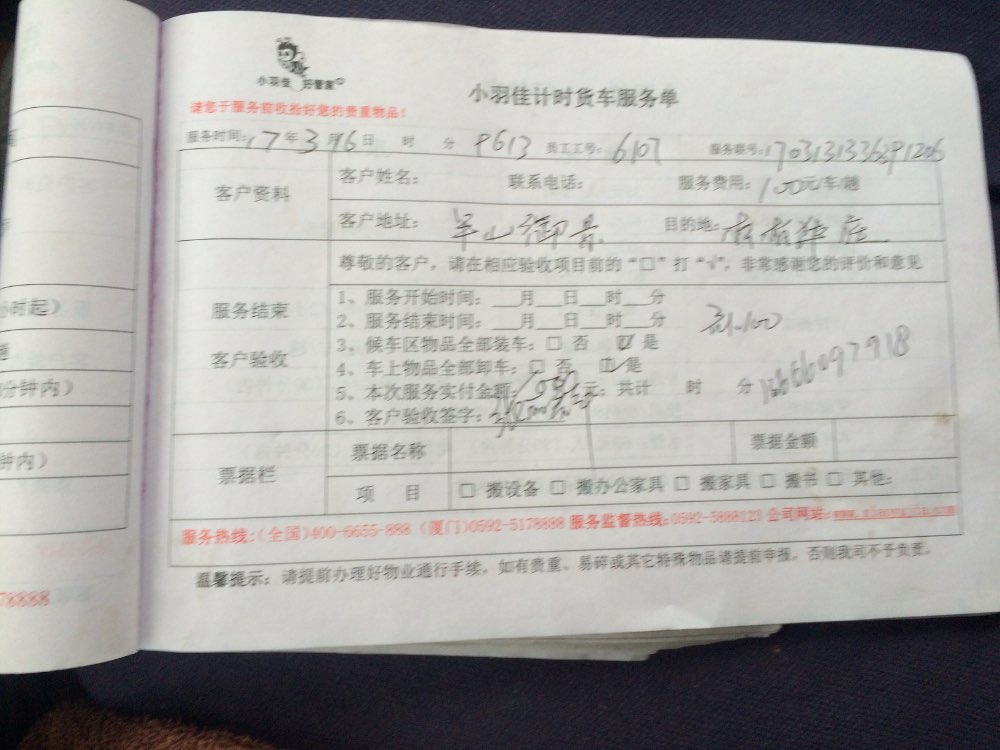 小羽佳 好管家
小羽佳计时货车服务单
请您于服务前收拾好您的贵重物品！
服务时间：17年3月16日 时 分 9613 员工工号：6107 服务联号：
客户资料
客户姓名： 联系电话： 服务费用：100元/车/趟
客户地址：半山御景 目的地：
尊敬的客户，请在相应验收项目前的“□”打“√”，非常感谢您的评价和意见
服务结束
客户验收
1、服务开始时间：___月___日___时___分
2、服务结束时间：___月___日___时___分
3、候车区物品全部装车：□ 否 ☑ 是
4、车上物品全部卸车：□ 否 ☑ 是
5、本次服务实付金额： 元；共计 时 分
6、客户验收签字：
票据栏
票据名称 票据金额
项 目 □ 搬设备 □ 搬办公家具 □ 搬家具 □ 搬书 □ 其他：
服务热线：(全国)400-6655-888 (厦门)0592-5178888 服务监督热线：0592-5888123 公司网站：www.xiaoyujia.com
温馨提示：请提前办理好物业通行手续，如有贵重、易碎或其它特殊物品请提前申报，否则我司不予负责。
小时起）
分钟内）
钟内）
78888